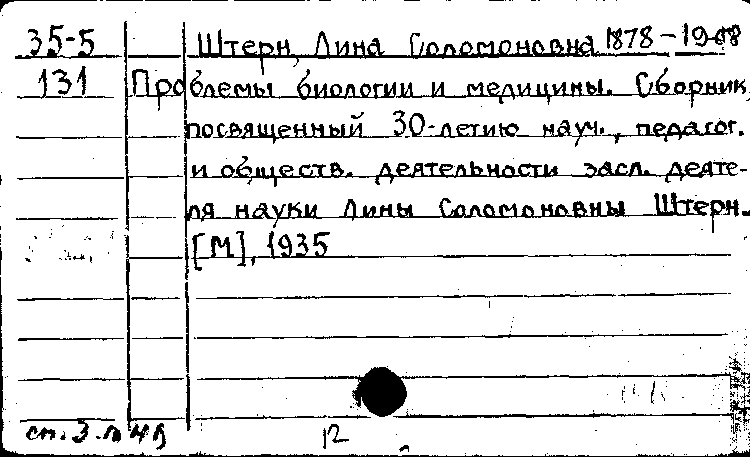 35-5 Штерн, Лина Соломоновна 1878-1968
131 Проблемы биологии и медицины. Сборник,
посвященный 30-летию науч., педагог.
и обществ. деятельности засл. деяте-
ля науки Лины Соломоновны Штерн.
[М], 1935
12